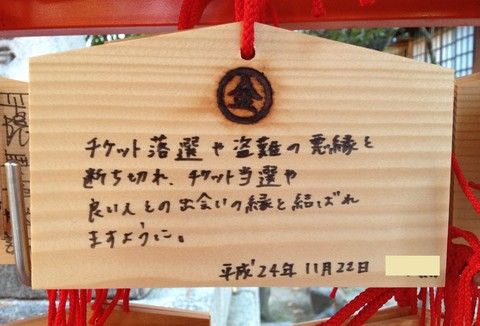 金
チケット落選や盗難の悪縁を
断ち切れ、チケット当選や
良い人との出会いの縁を結ばれ
ますように。
平成24年11月22日